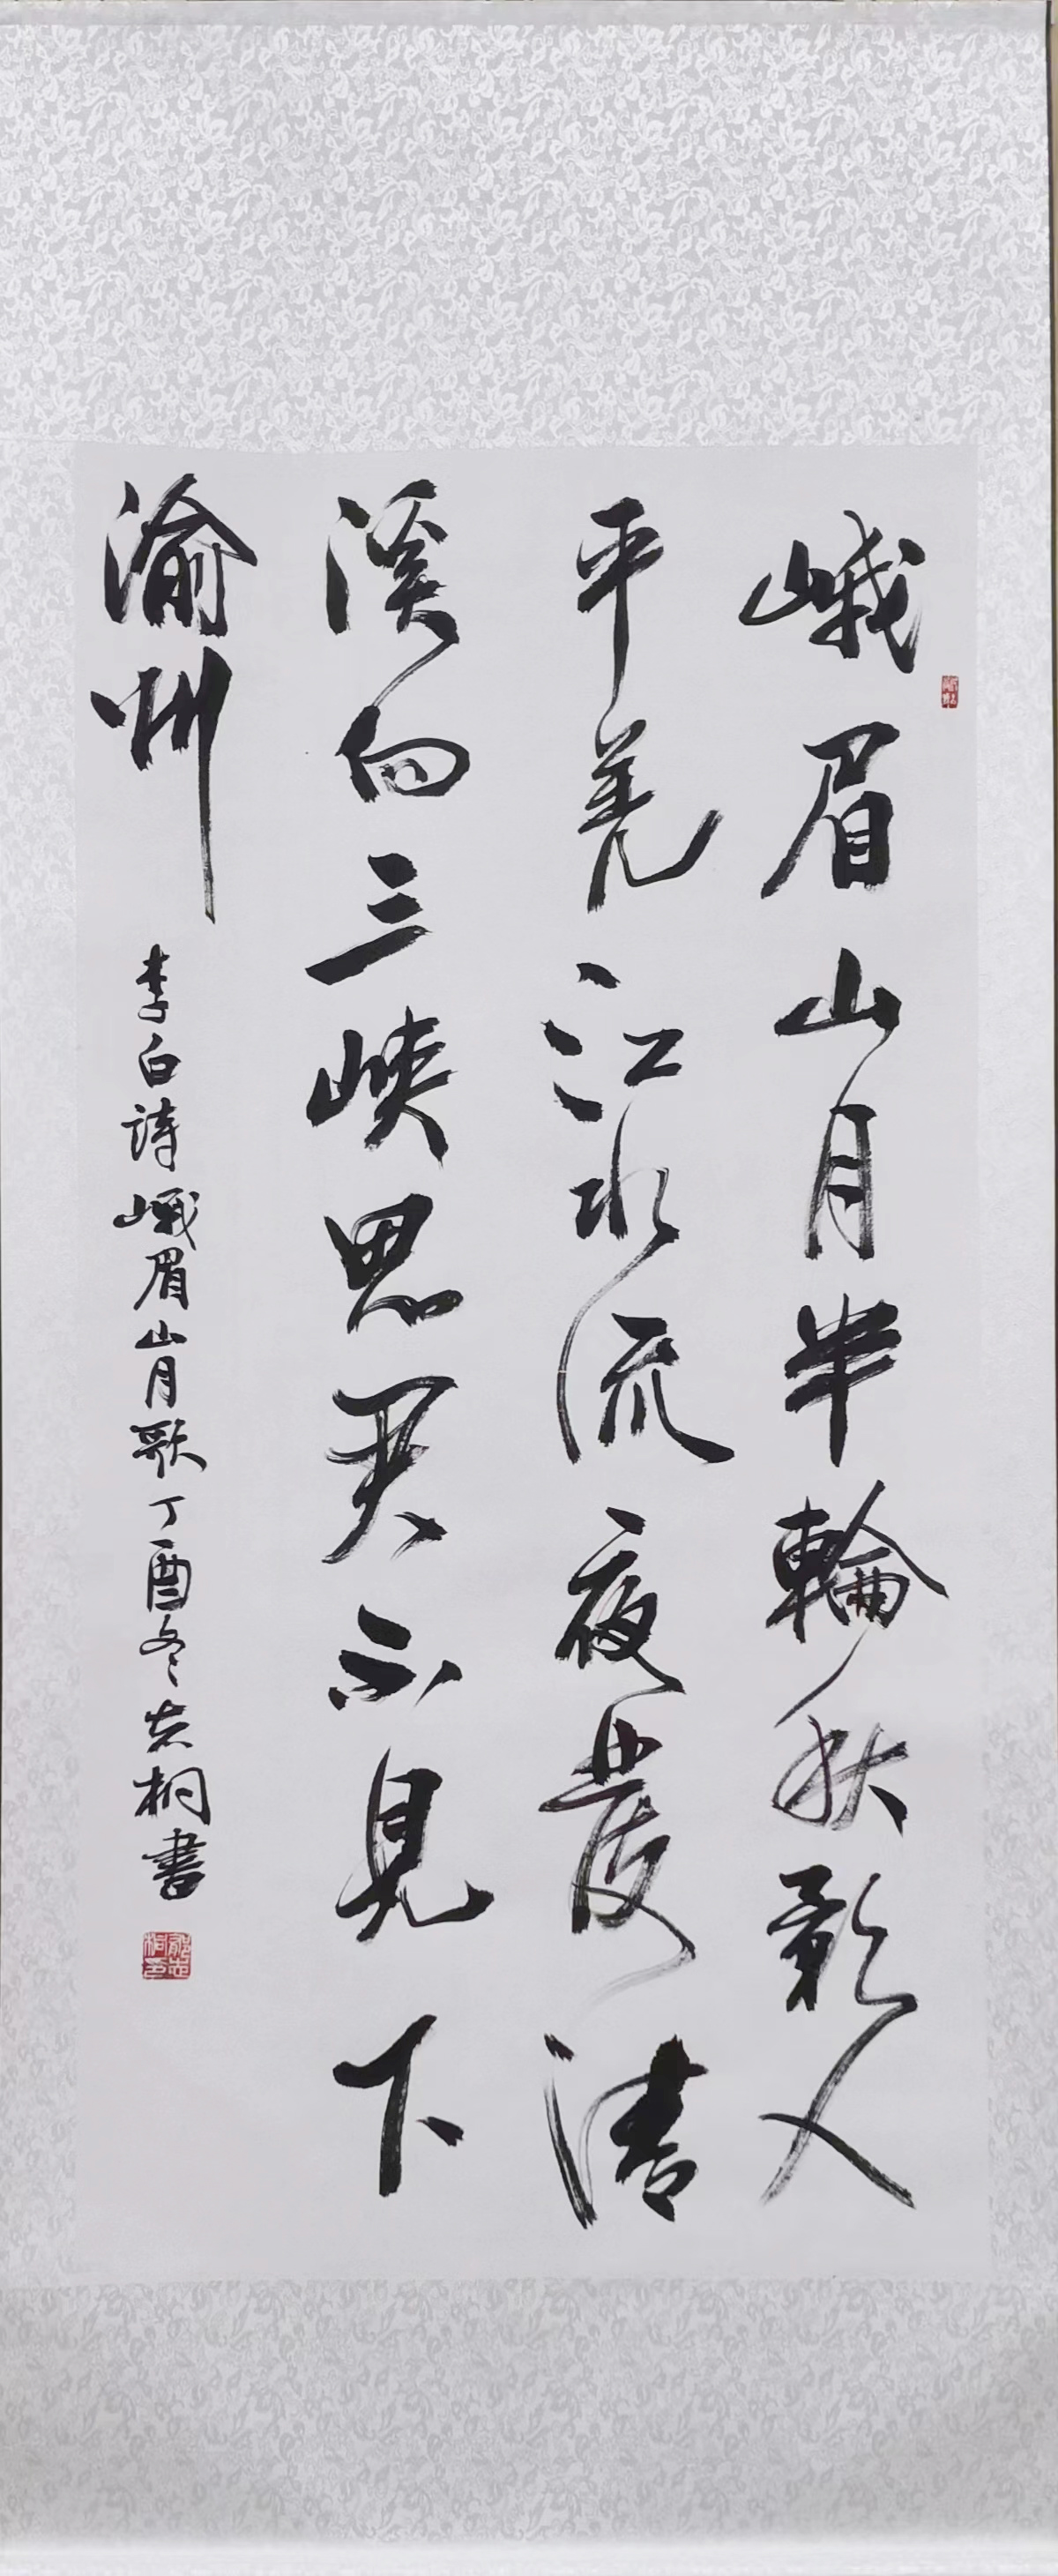 峨眉山月半輪秋影人
平羌江水流夜發清
溪向三峽思君不見下
渝州
李白詩峨眉山月歌丁酉冬志桐書